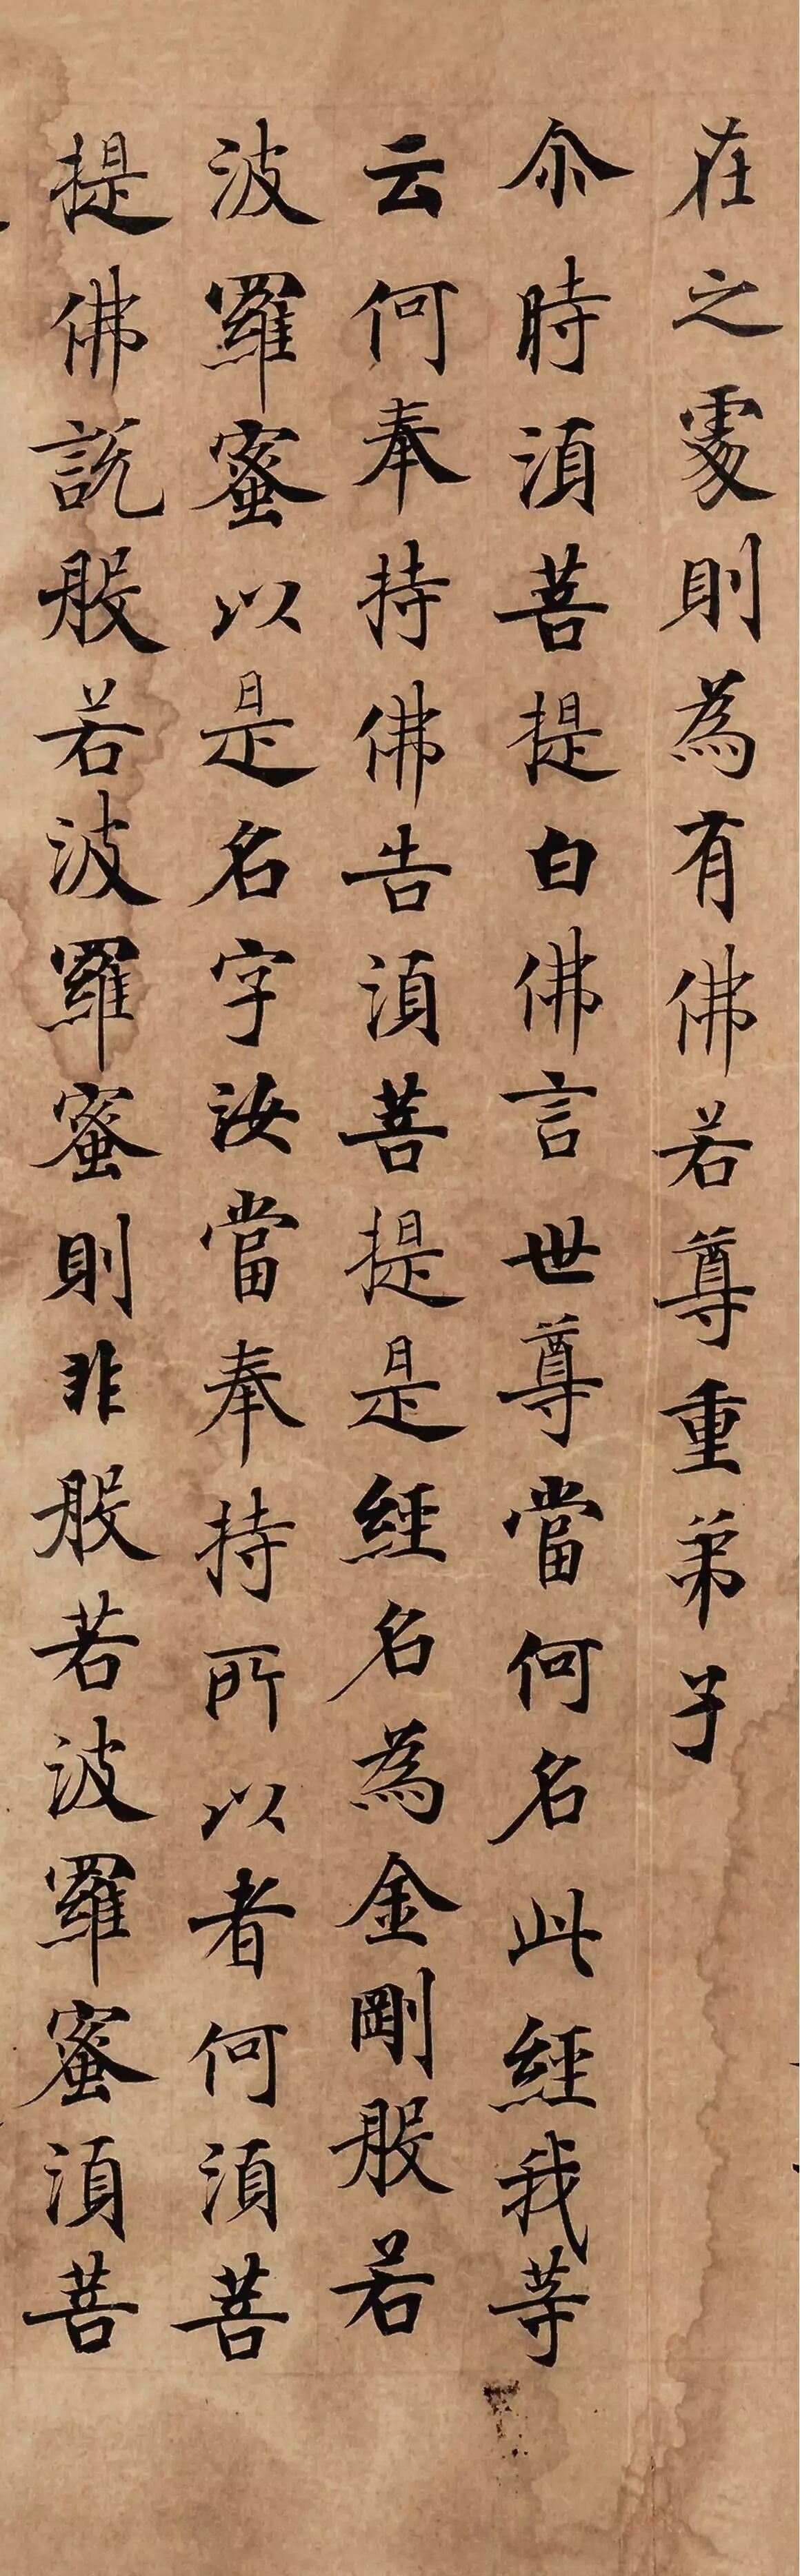 在之處則為有佛若尊重弟子
尒時湏菩提白佛言世尊當何名此經我等
云何奉持佛告湏菩提是經名為金剛般若
波羅蜜以是名字汝當奉持所以者何湏菩
提佛説般若波羅蜜則非般若波羅蜜湏菩